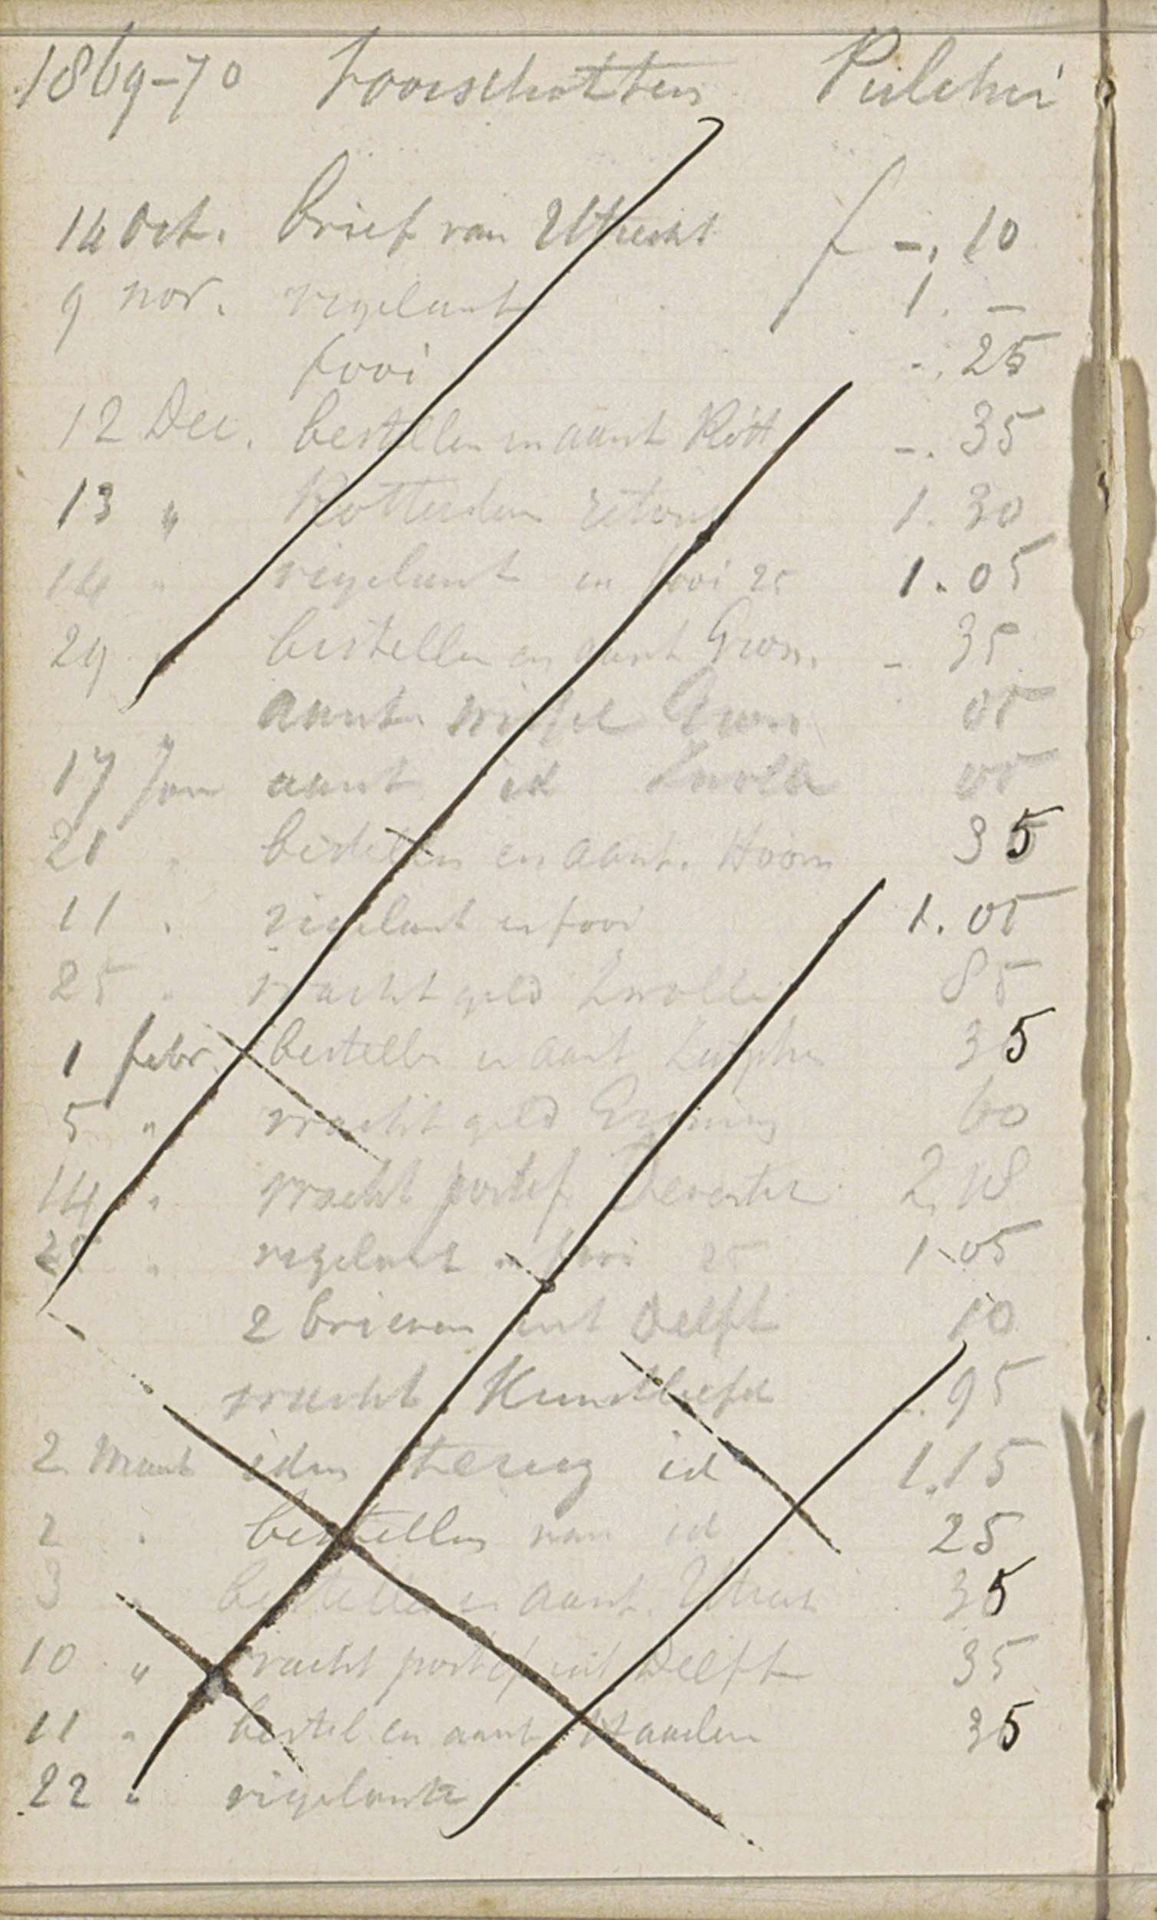 1869-70 Voorschotten Pulchri
14 Oct. brief van Utrecht f -. 10
9 nov. vigelant 1. -
fooi -. 25
12 Dec. bestellen en aant Rott -. 35
13 " Rotterdam retour 1. 30
14 " vigelant en fooi 25 1. 05
29 " bestellen en aant Gron. - 35
aant. wissel Gron 05
17 Jan aant id Zwolle 05
20 " bestellen en aant. Hoorn 35
11 " vigelant en fooi 1. 05
25 " vracht geld Zwolle 85
1 febr. bestellen en aant Zutphen 35
5 " vracht geld 60
14 " vracht portef Deventer 2,
25 " vigelant " fooi 25 1.05
2 brieven uit Delft 10
vracht Kunstliefde 95
2 Maart idem terug id 1.15
2 " bestellen van id 25
3 " bestellen en aant. Utrecht 35
10 " vracht portef uit Delft 35
11 " bestel en aant Haarlem 35
22 " vigelante